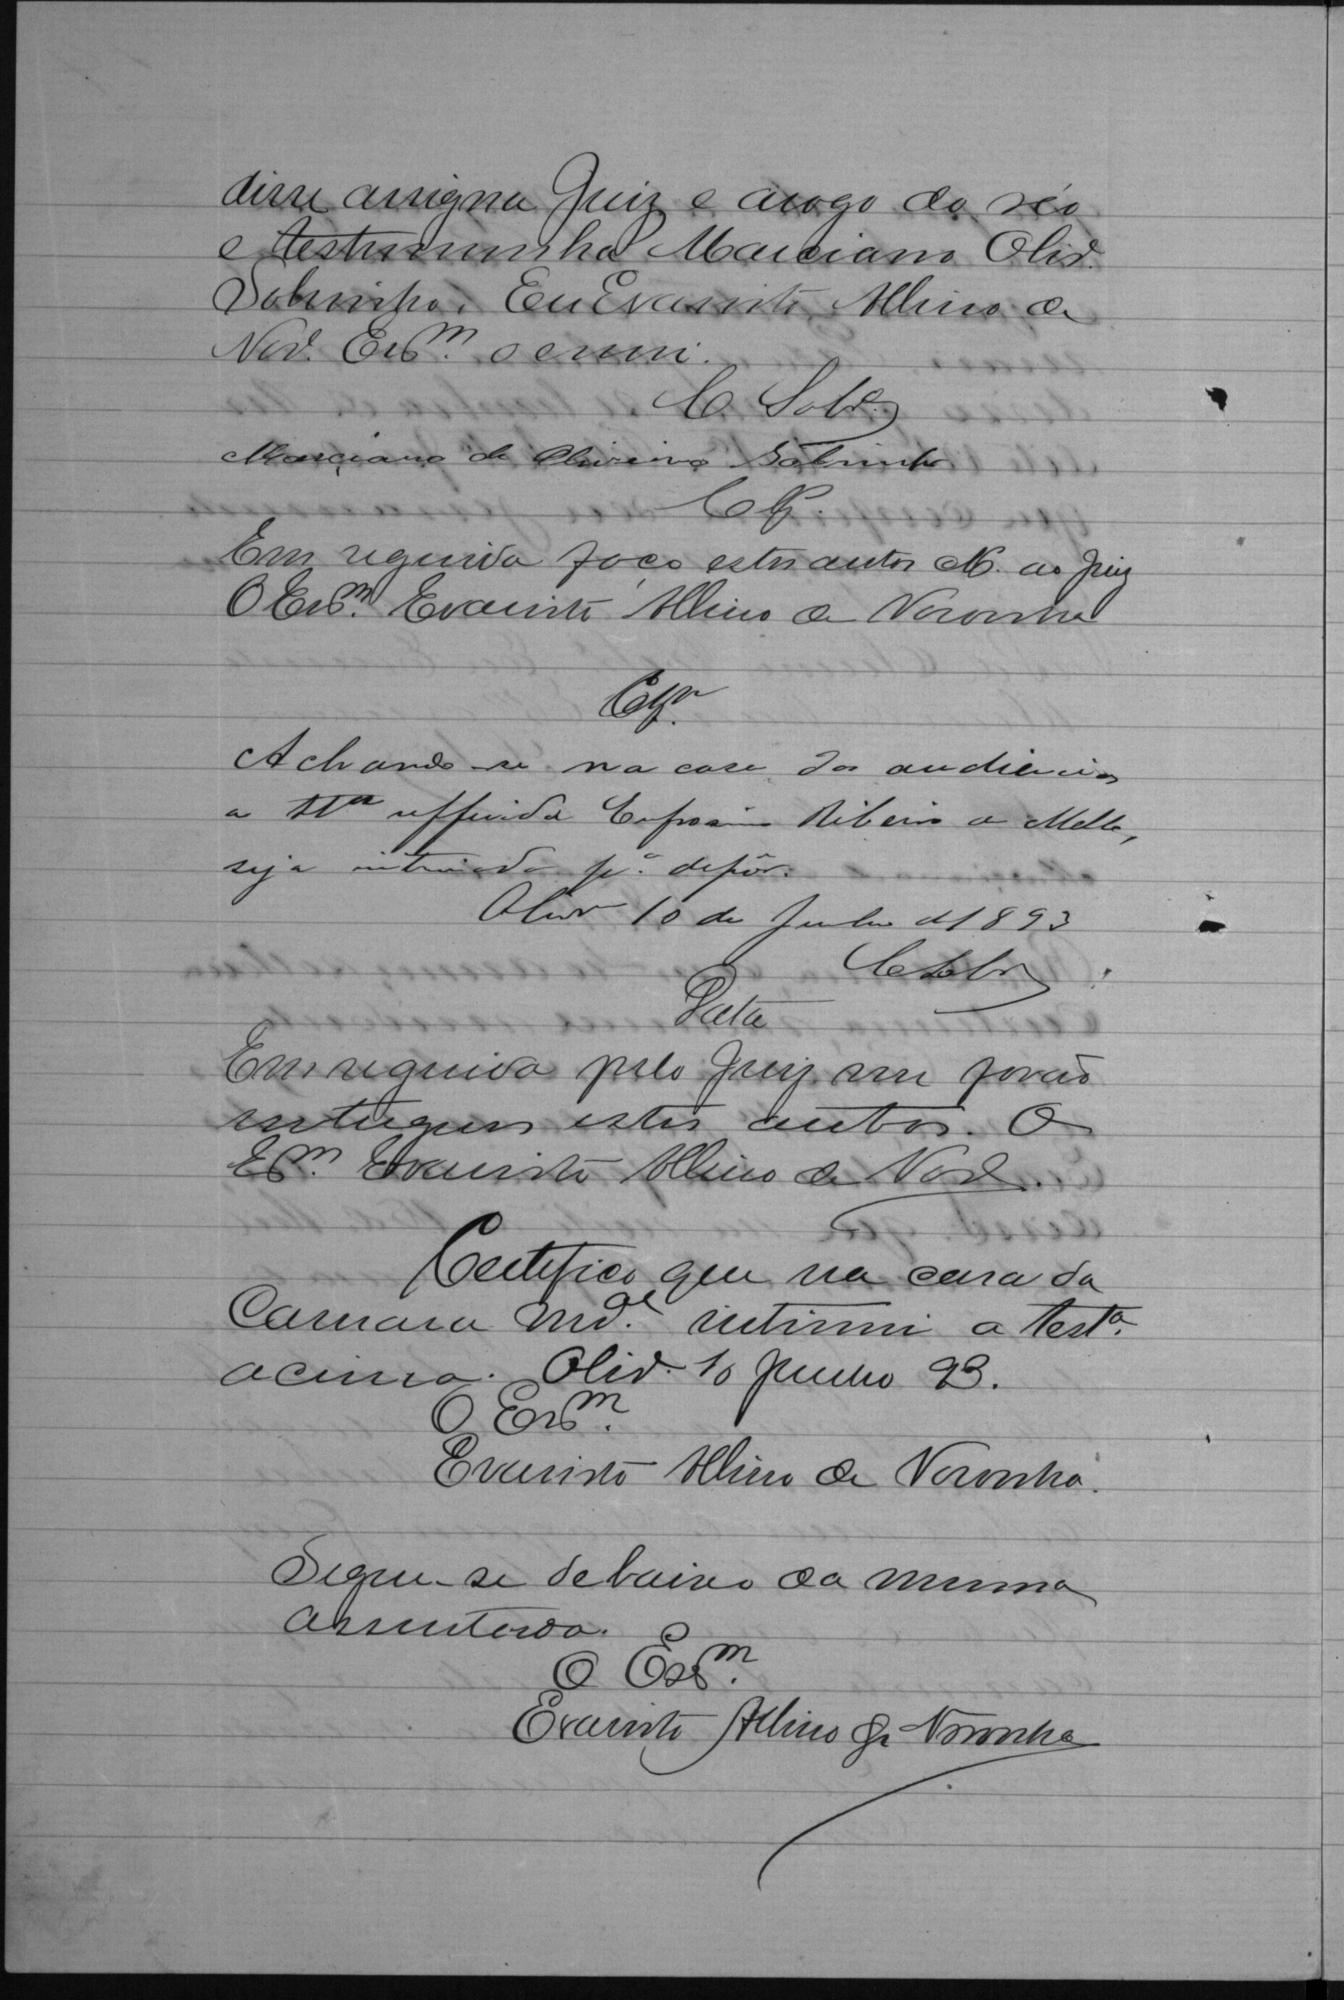 disse assigna Juiz e arogo do réo
e testemunha Marciano Olivr.
Sobrinho. Eu Evaristo Albino de
Nor. Escrm. o escrevi.
C Sobr.
Marciano de Oliveira Sobrinho
Cls.
Em seguida faço estes autos Cls. ao Juiz
O Escm. Evaristo Albino de Noronha
Clsn.
Achando-se na casa das audiencias
a tta refferida Ribeiro de Mello,
seja intimada pa. depôr.
Olivr 10 de Junho de 1893
C Sobr
Data
Em seguida pelo Juiz me forão
entregues estes autos. O
Escm. Evaristo Albino de Norª.
Certifico que na casa da
Camara Mdal. intimei a testa.
acima. Olivr. 10 Junho 93.
O Escm.
Evaristo Albino de Noronha.
Segue-se debaixo da mesma
assentada.
O Escm.
Evaristo Albino de Noronha